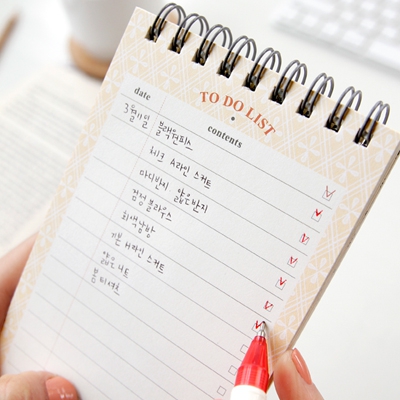 TO DO LIST
date contents
3월11일 블랙원피스
체크 A라인 스커트
마디반지 얇은반지
검정 블라우스
회색남방
기본 H라인 스커트
얇은니트
봄 티셔츠